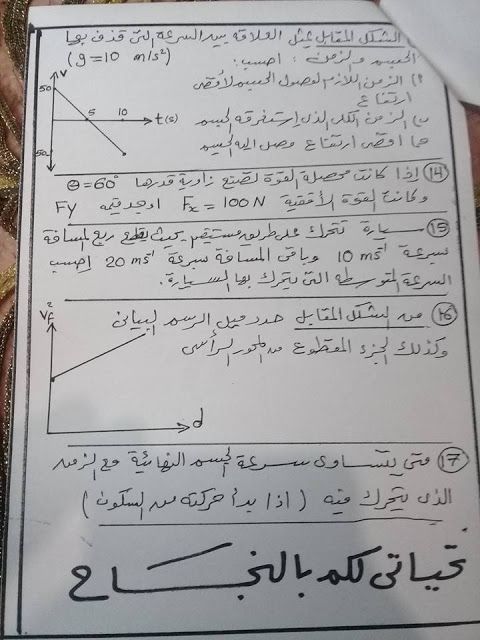 الشكل المقابل يمثل العلاقة بين السرعة التى قذف بها
الجسم والزمن : احسب : (g=10 m/s²)
أ) الزمن اللازم لوصول الجسم لأقصى
ارتفاع
ب) الزمن الكلى الذى استغرقه الجسم
ج) اقصى ارتفاع وصل اليه الجسم
V
50
5
10
t(s)
50
١٤ إذا كانت محصلة القوة تصنع زاوية قدرها θ=60°
وكانت القوة الأفقية Fx = 100 N اوجد قيمه Fy
١٥ سيارة تتحرك على طريق مستقيم بحيث تقطع ربع المسافة
بسرعة 10 ms⁻¹ وباقى المسافة بسرعة 20 ms⁻¹ احسب
السرعة المتوسطه التى يتحرك بها السيارة.
١٦ من الشكل المقابل حدد ميل الرسم البيانى
وكذلك الجزء المقطوع من المحور الرأسى
Vf²
d
١٧ متى يتساوى سرعة الجسم النهائية مع الزمن
الذى يتحرك فيه ( اذا بدأ حركته من السكون )
تحياتى لكم بالنجاح